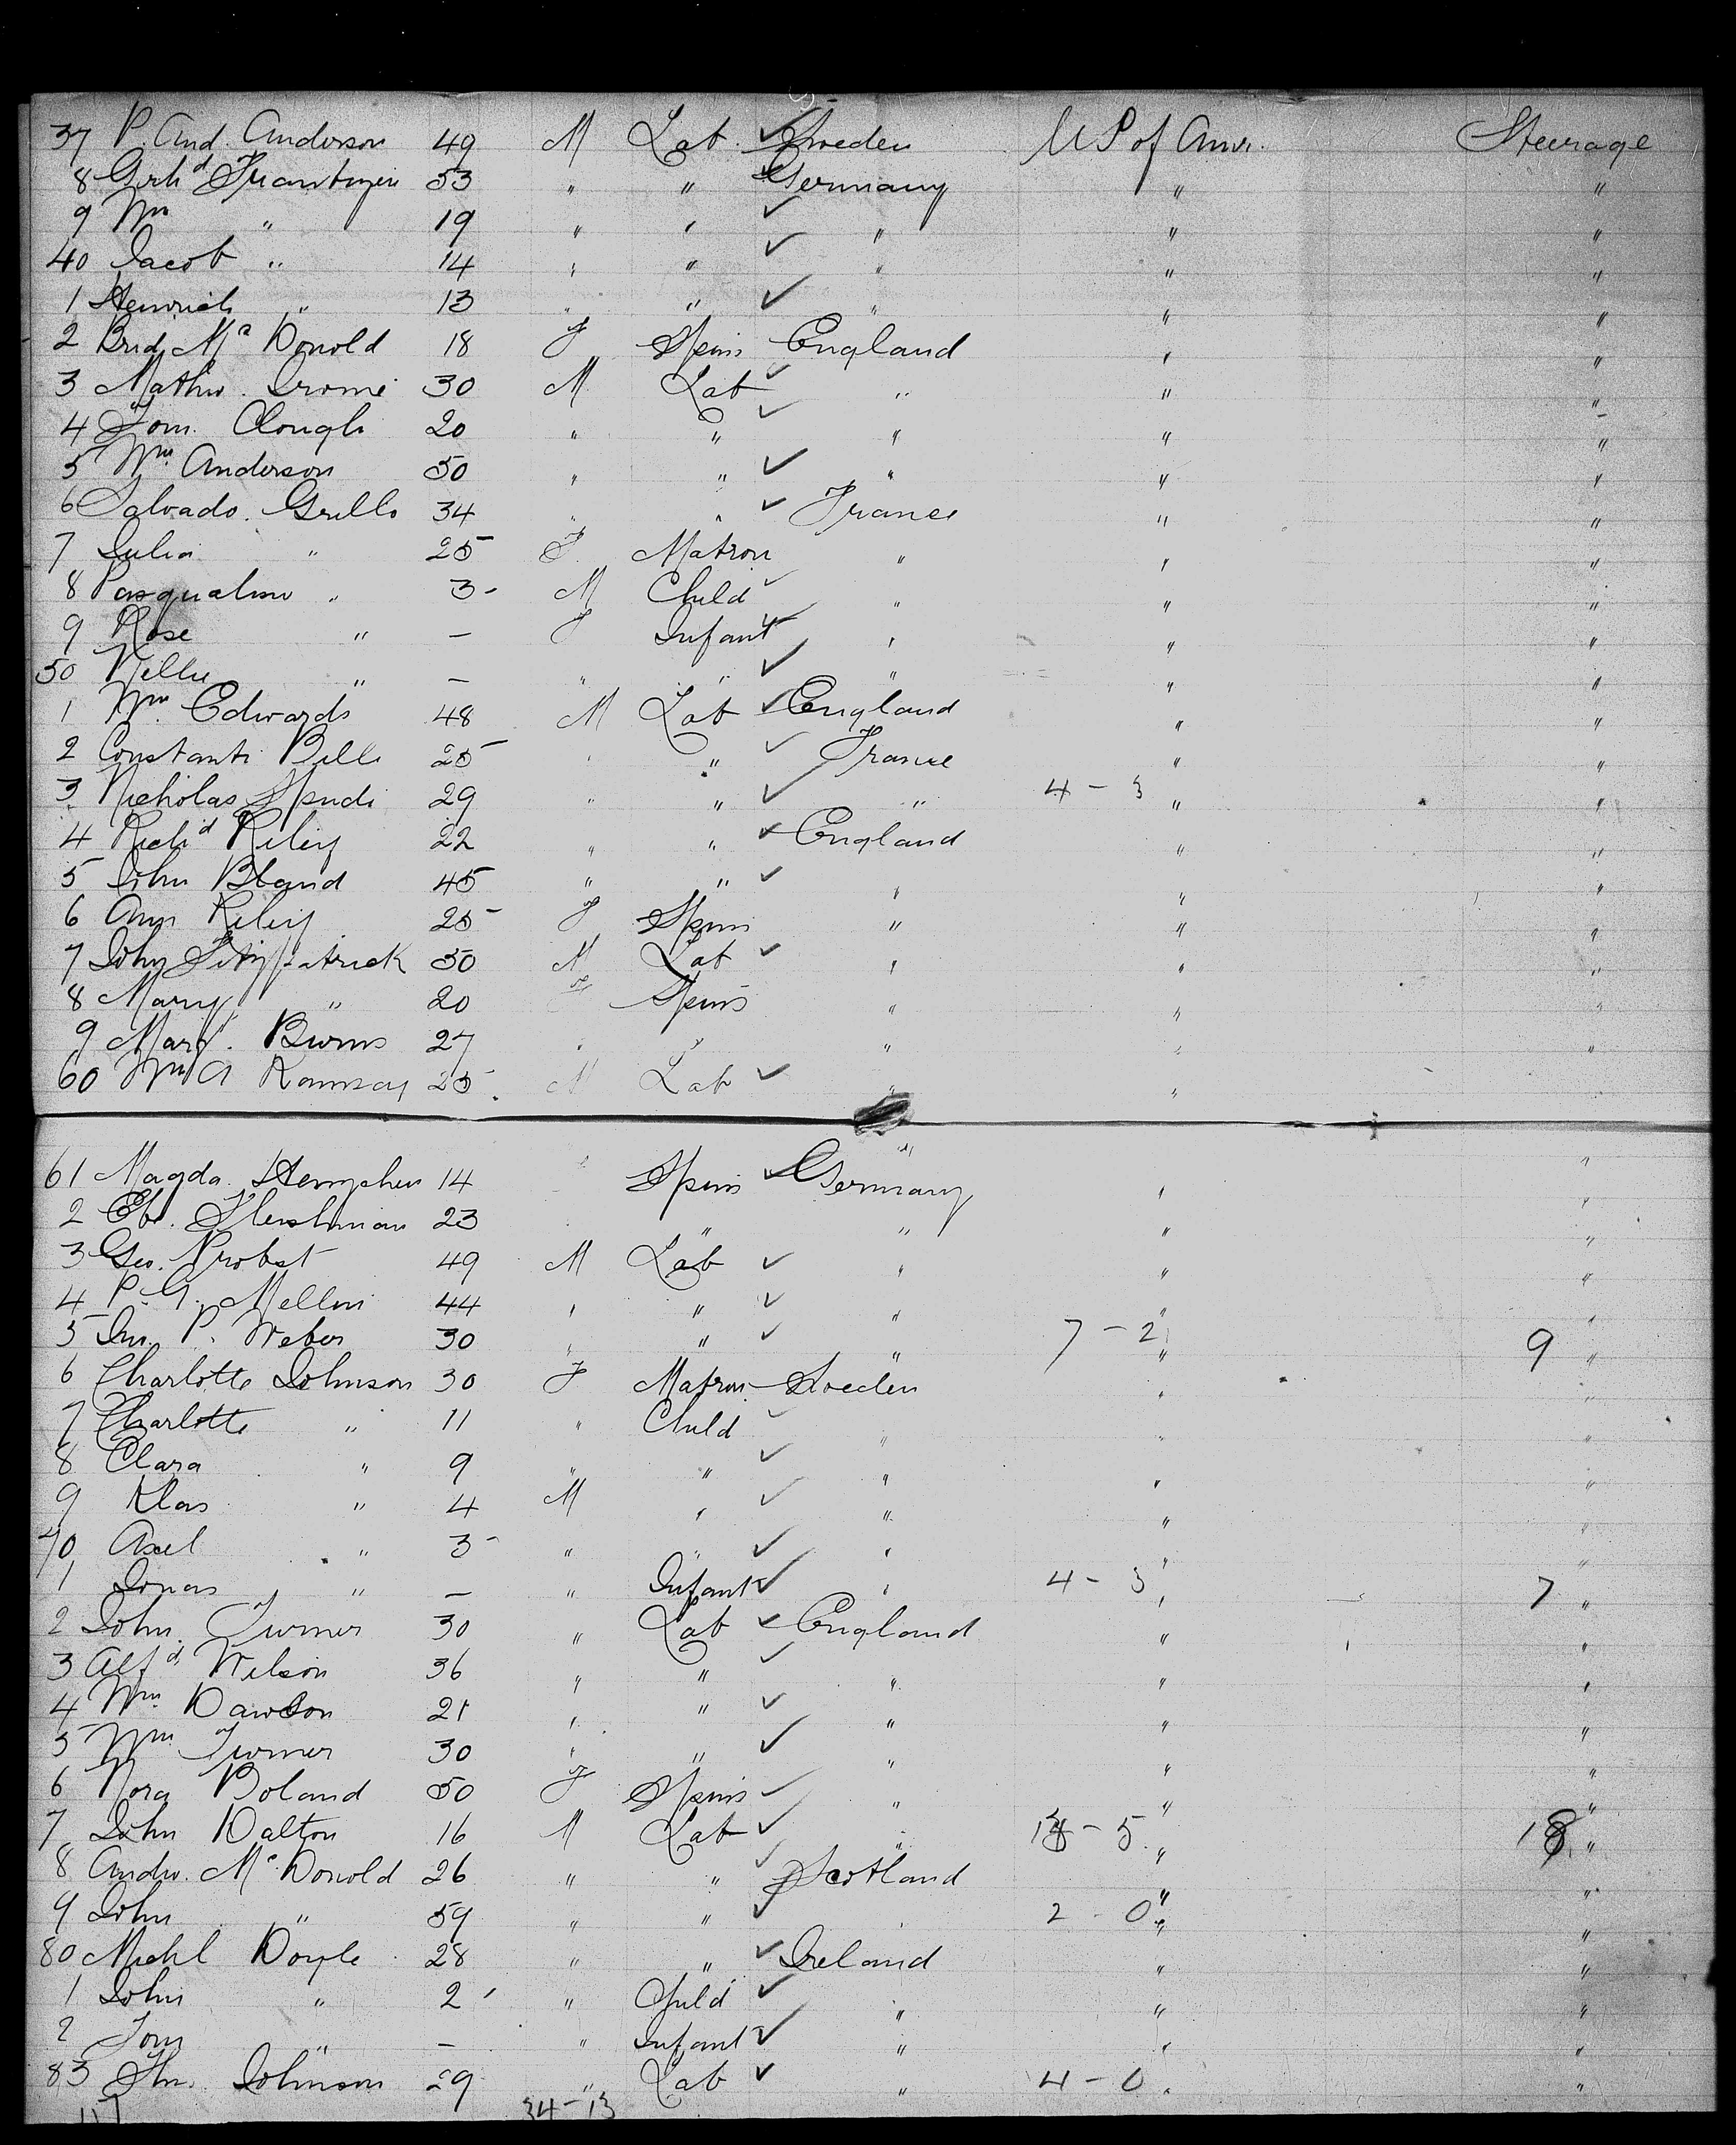 37 P. And. Anderson 49 M Lab. Sweden U S of Amer. Steerage
8 Grhd Frantzen 53 " " Germany " "
9 Wm " 19 " " " " "
40 Jacob " 14 " " " " "
1 Heinrich " 13 " " " " "
2 Brid. Mc Donold 18 F Spins England " "
3 Mathw. 30 M Lab " " "
4 Tom. Clough 20 " " " " "
5 Wm. Anderson 50 " " " " "
6 Salvado. Grillo 34 " " France " "
7 Julia " 25 F. Matron " " "
8 Pasqualino " 3 - M Child " " "
9 Rose " — F Infant " " "
50 Nellie " — " " " " "
1 Wm. Edwards 48 M Lab England " "
2 Constanti Billi 25 " " France " "
3 Nicholas Spudi 29 " " " 4 - 3 " "
4 Richd Riley 22 " " England " "
5 John Bland 45 " " " " "
6 Ann Riley 25 F Spins " " "
7 John Fitzpatrick 50 M Lab " " "
8 Mary " 20 F Spins " " "
9 Mary. Burns 27 " " " " "
60 Wm A Ramsay 25 M Lab " " "
61 Magda. 14 " Spins Germany " "
2 Fleishman 23 " " " " "
3 Geo. Probst 49 M Lab " " "
4 P. G. Mellin 44 " " " " "
5 Jno. P. Weber 30 " " " 7 - 2 " 9 "
6 Charlotte Johnson 30 F Matron Sweden " "
7 Charlotte " 11 " Child " " "
8 Clara " 9 " " " " "
9 Klas " 4 M " " " "
70 Axel " 3 - " " " " "
1 Jonas " — " Infant " 4 - 3 " 7 "
2 John. Turner 30 " Lab England " "
3 Alfd. Wilson 36 " " " " "
4 Wm. Dawson 21 " " " " "
5 Wm. Turner 30 " " " " "
6 Nora Boland 50 F Spins " " "
7 John Dalton 16 M Lab " 13 - 5 " 18 "
8 Andw. Mc Donold 26 " " Scotland " "
9 John " 59 " " " 2 - 0 " "
80 Michl Doyle 28 " " Ireland " "
1 John " 2 " Child " " "
2 Tom " — " Infant " " "
83 Johnson 29 " Lab " 4 - 0 " "
117 34 - 13